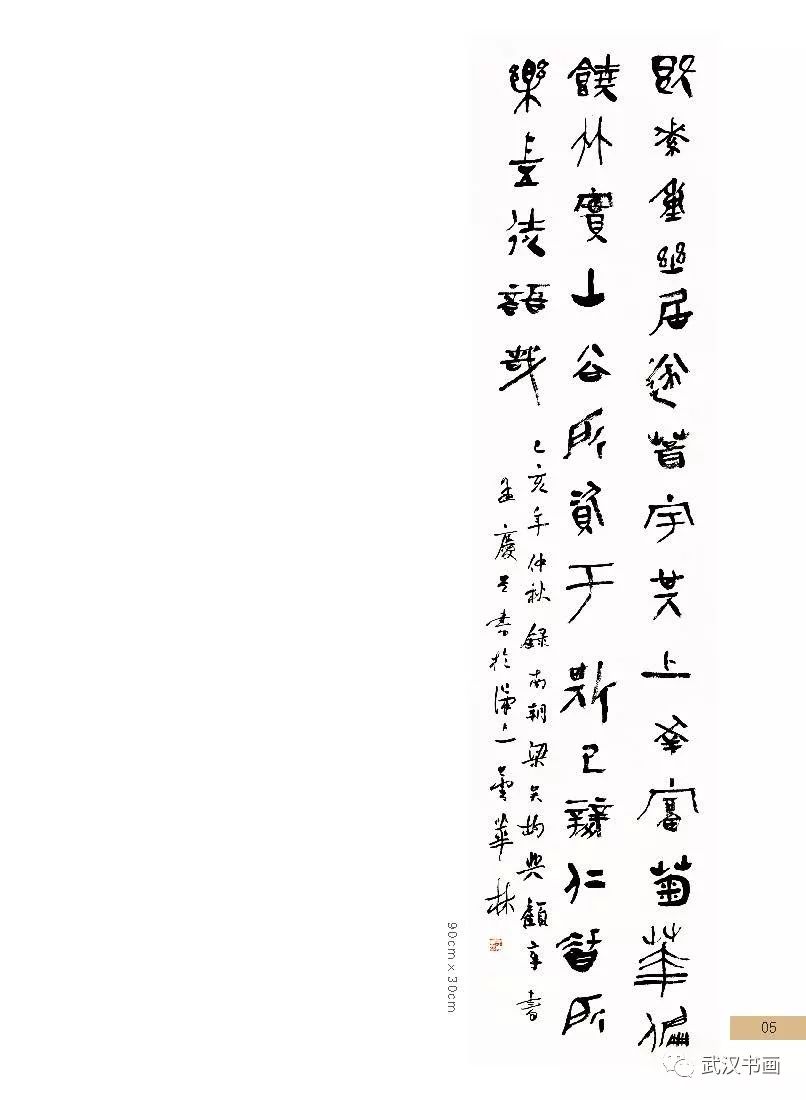 既素重幽居遂葺宇其上幸富菊華偏
饒竹實山谷所資于斯已辦仁智所
樂豈徒語哉
己亥年仲秋錄南朝梁吴均與顧章書
孟慶星書於漢上曇華林
90cm x 30cm
05
武汉书画